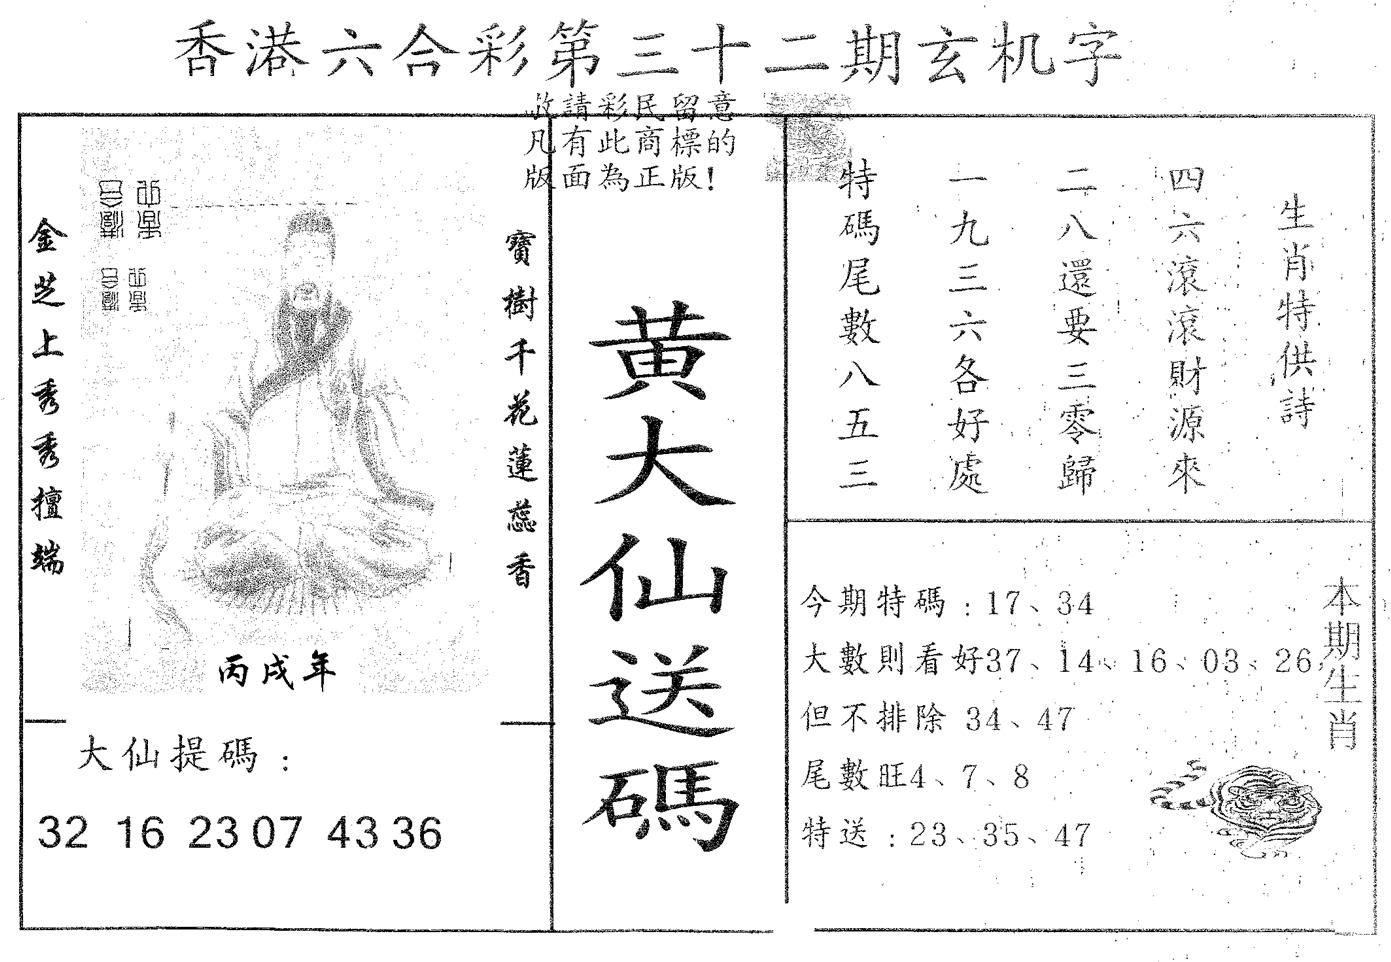 香港六合彩第三十二期玄机字
請彩民留意
凡有此商標的
版面為正版!
金芝上秀秀擅端
寶樹千花蓮蕊香
丙戌年
大仙提碼：
32 16 23 07 43 36
黄大仙送碼
生肖特供詩
四六滾滾財源來
二八還要三零歸
一九三六各好處
特碼尾數八五三
今期特碼：17、34
大數則看好37、14、16、03、26
但不排除 34、47
尾數旺4、7、8
特送：23、35、47
本期生肖